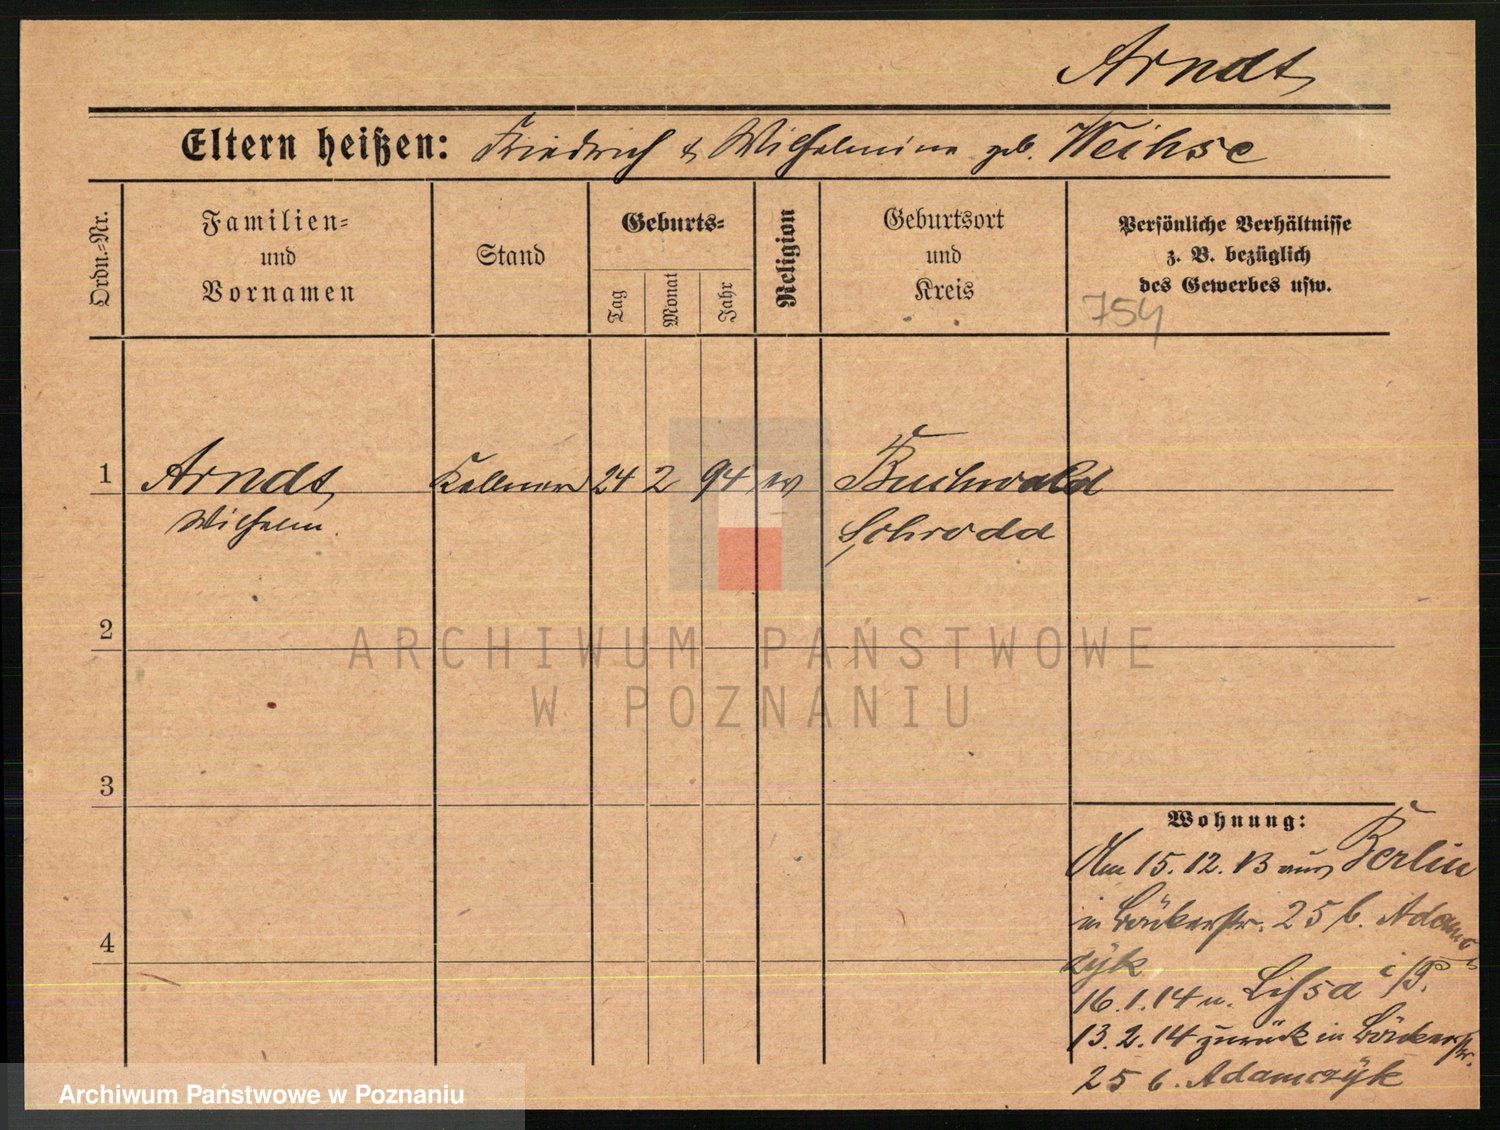 Arndt
Eltern heißen: Friedrich & Wilhelmine geb. Weihse
Ordn.-Nr.
Familien-
und
Vornamen
Stand
Geburts-
Tag
Monat
Jahr
Religion
Geburtsort
und
Kreis
Persönliche Verhältnisse
z. B. bezüglich
des Gewerbes usw.
754
1 Arndt Kellner 24 2 94 ev Buchwald
Wilhelm Schrodd
2
ARCHIWUM PAŃSTWOWE
W POZNANIU
3
Wohnung:
Am 15.12.13 aus Berlin
in Bäckerstr. 25 b. Adamc
4
zyk
16.1.14 n. Lissa i/P.
13.2.14 zurück in Bäckerstr.
25 b. Adamczyk
Archiwum Państwowe w Poznaniu